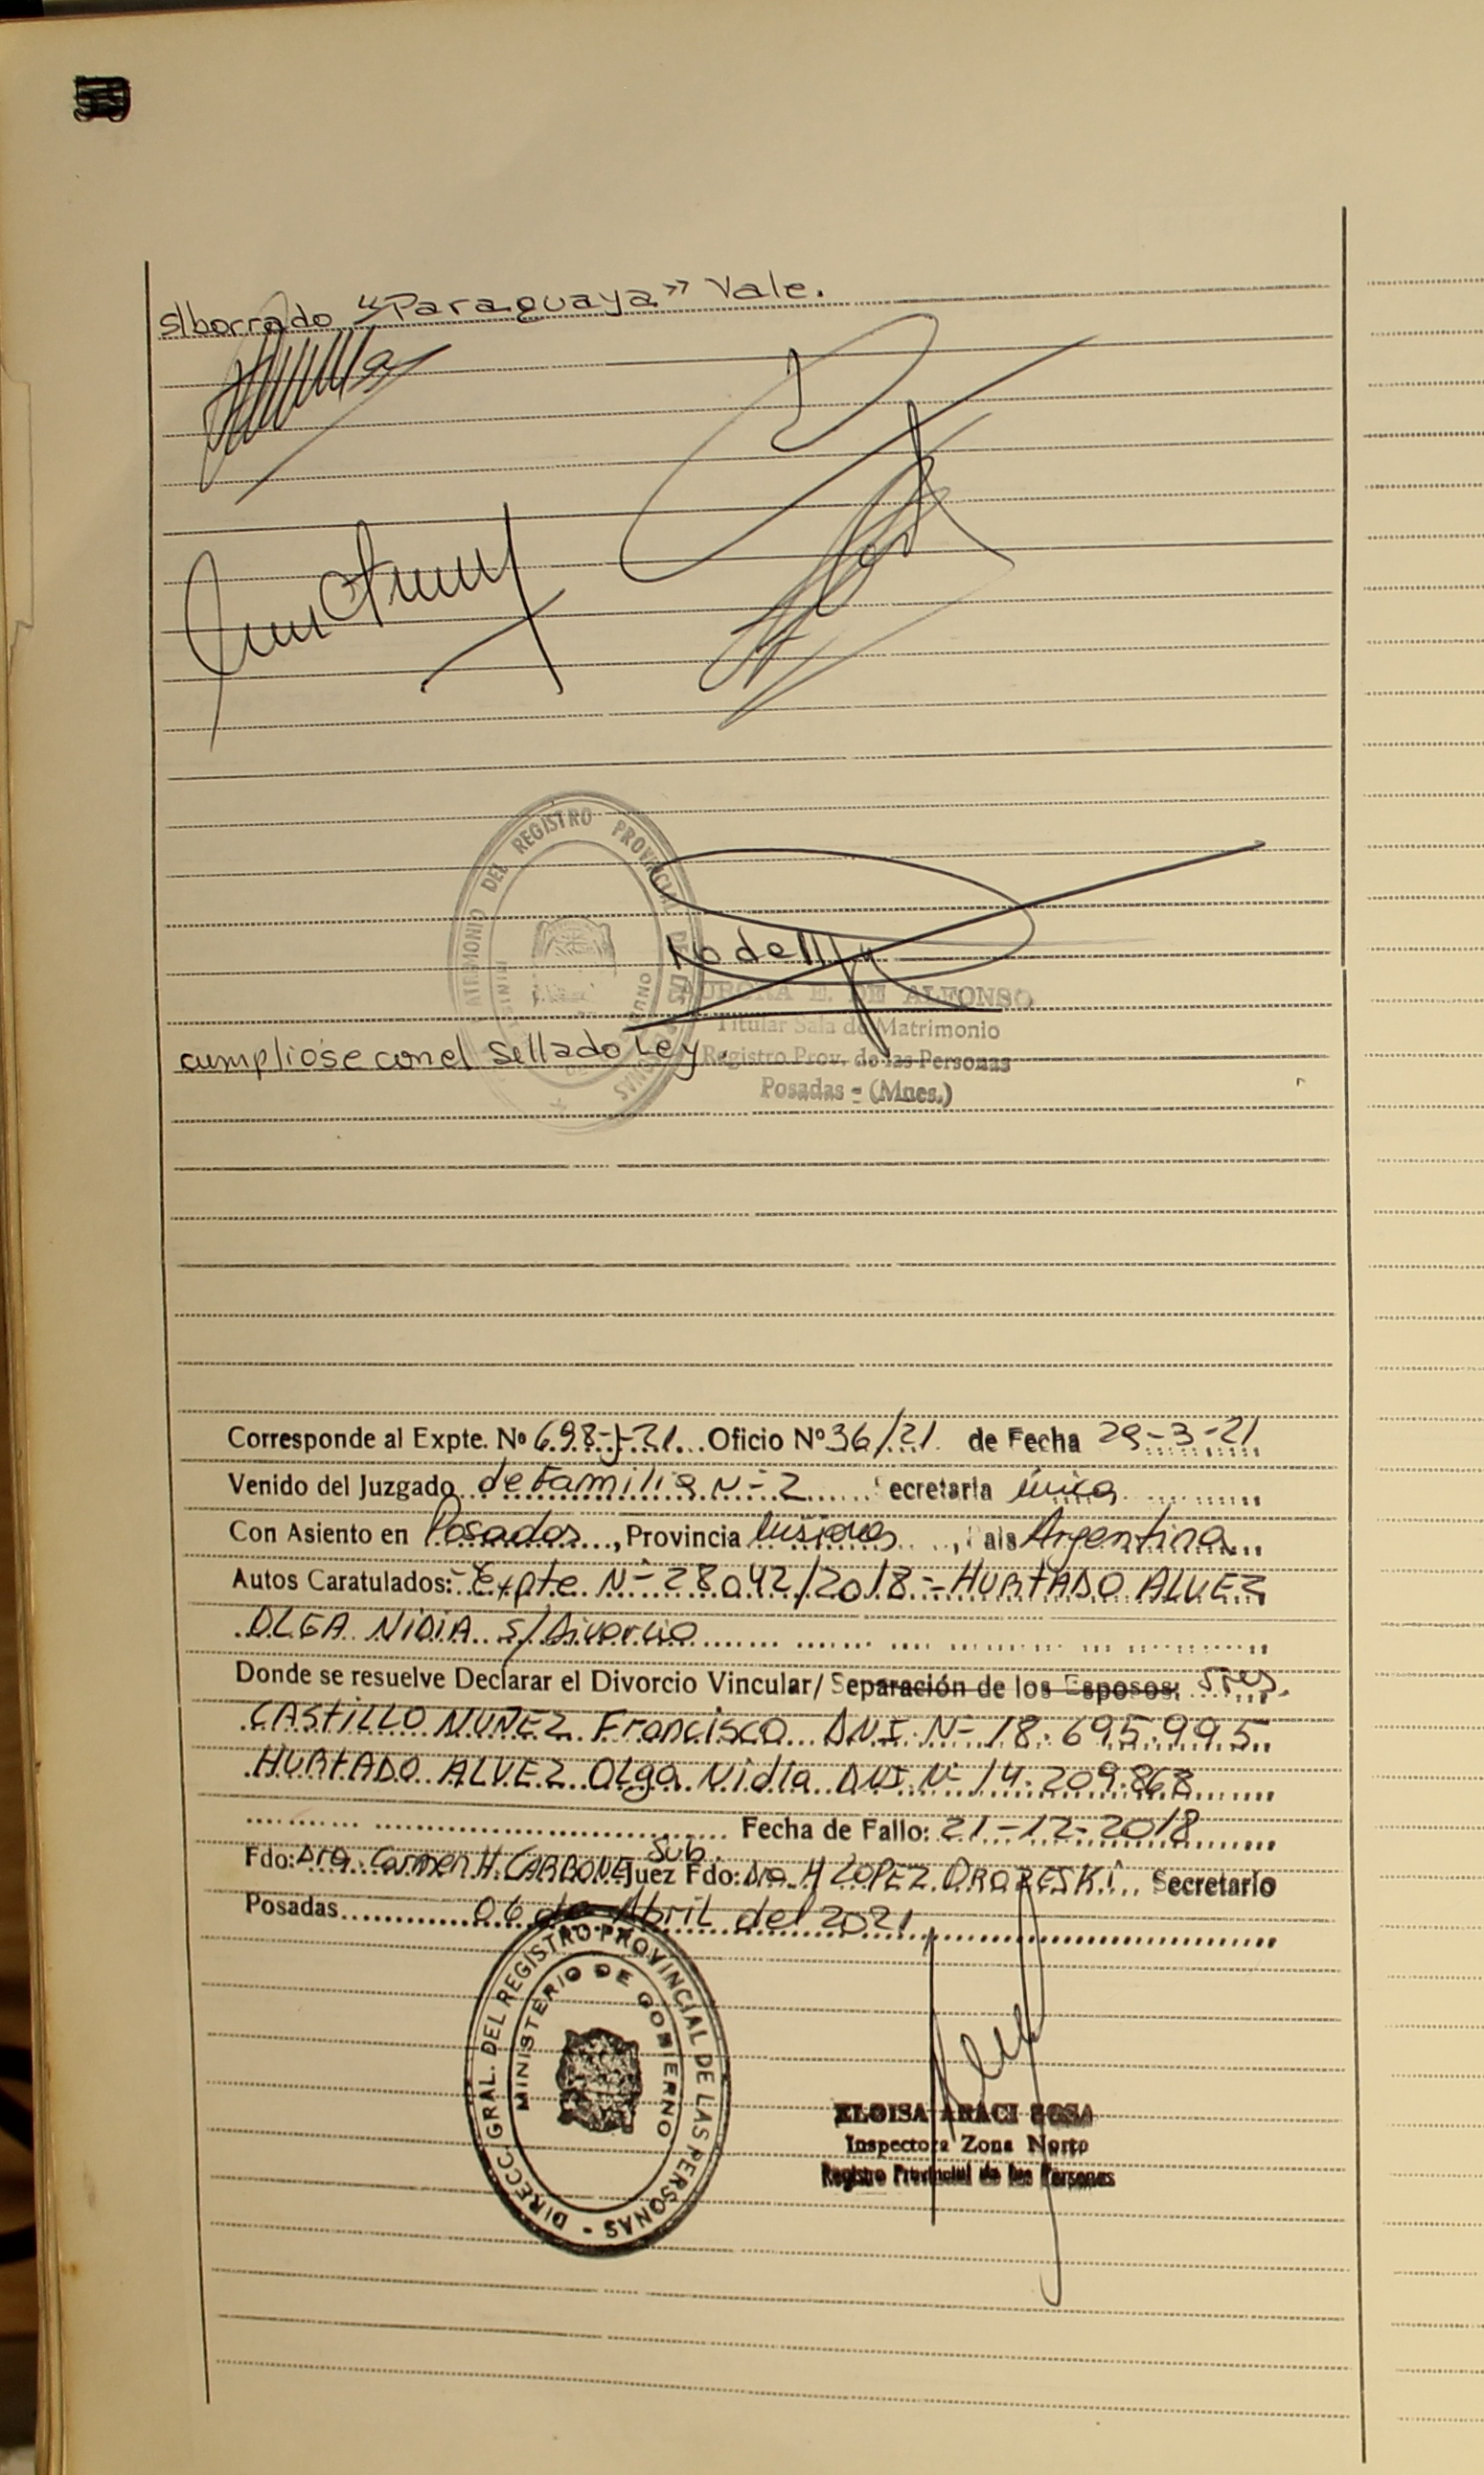 s/borrado "Paraguaya" Vale.
MATRIMONIO DEL REGISTRO PROVINCIAL DE LAS PERSONAS
AURORA E. DE ALFONSO
Titular Sala de Matrimonio
cumpliose con el Sellado Ley.
Registro Prov. de las Personas
Posadas - (Mnes.)
Corresponde al Expte. Nº 698-J-21 Oficio Nº 36/21 de Fecha 29-3-21
Venido del Juzgado de Familia Nº 2 Secretaria única
Con Asiento en Posadas, Provincia Misiones, Pais Argentina
Autos Caratulados: Expte Nº 28042/2018 - HURTADO ALVEZ
OLGA NIDIA s/Divorcio
Donde se resuelve Declarar el Divorcio Vincular/ Separación de los Esposos: Sres.
CASTILLO NUÑEZ Francisco DNI Nº 18.695.995
HURTADO ALVEZ Olga Nidia DNI Nº 14.209.868
Fecha de Fallo: 21-12-2018
Fdo: Dra. Carmen H. CARBONE Sub. Juez Fdo: Dra. H LOPEZ Secretario
Posadas 06 de Abril del 2021
DIRECC. GRAL. DEL REGISTRO PROVINCIAL DE LAS PERSONAS -
MINISTERIO DE GOBIERNO
ELOISA ARACI SOSA
Inspectora Zona Norte
Registro Provincial de las Personas